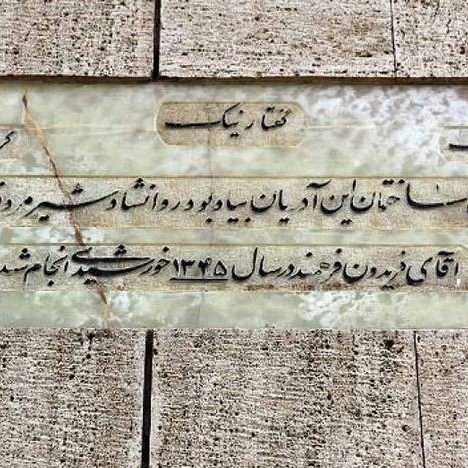 گفتار نیک
ساختمان این آدریان بیاد بود روانشاد شیر
آقای فریدون فرهمند در سال ۱۳۴۵ خورشیدی انجام شد